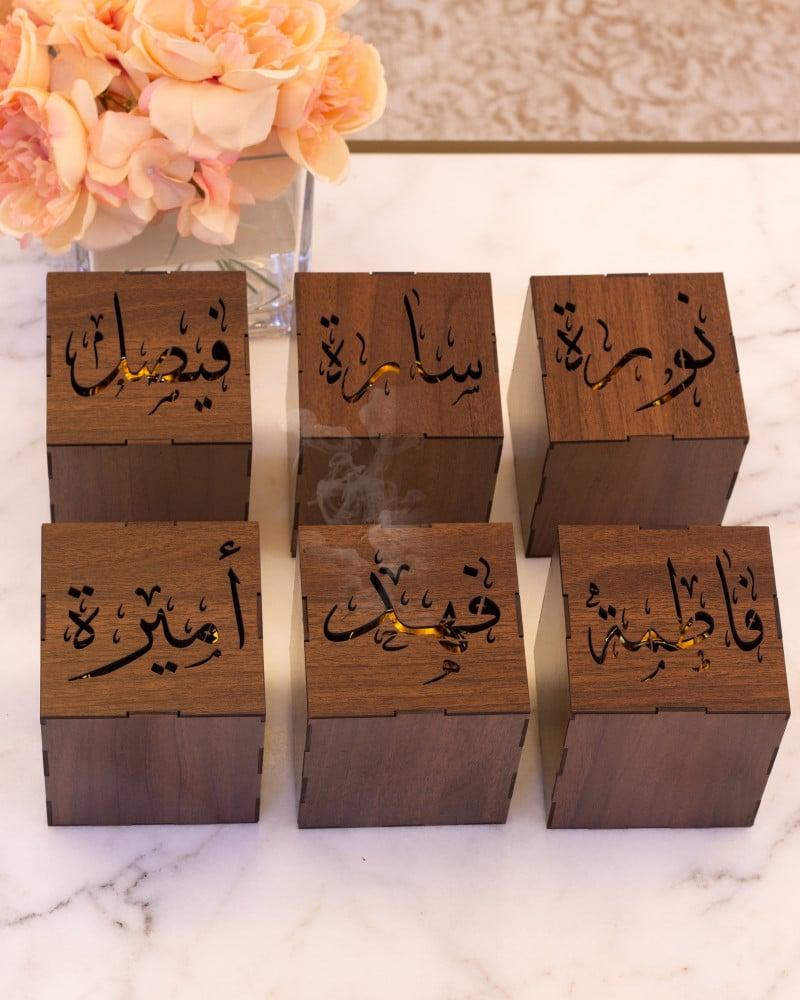 نورة
سارة
فيصل
فاطمة
فهد
أميرة